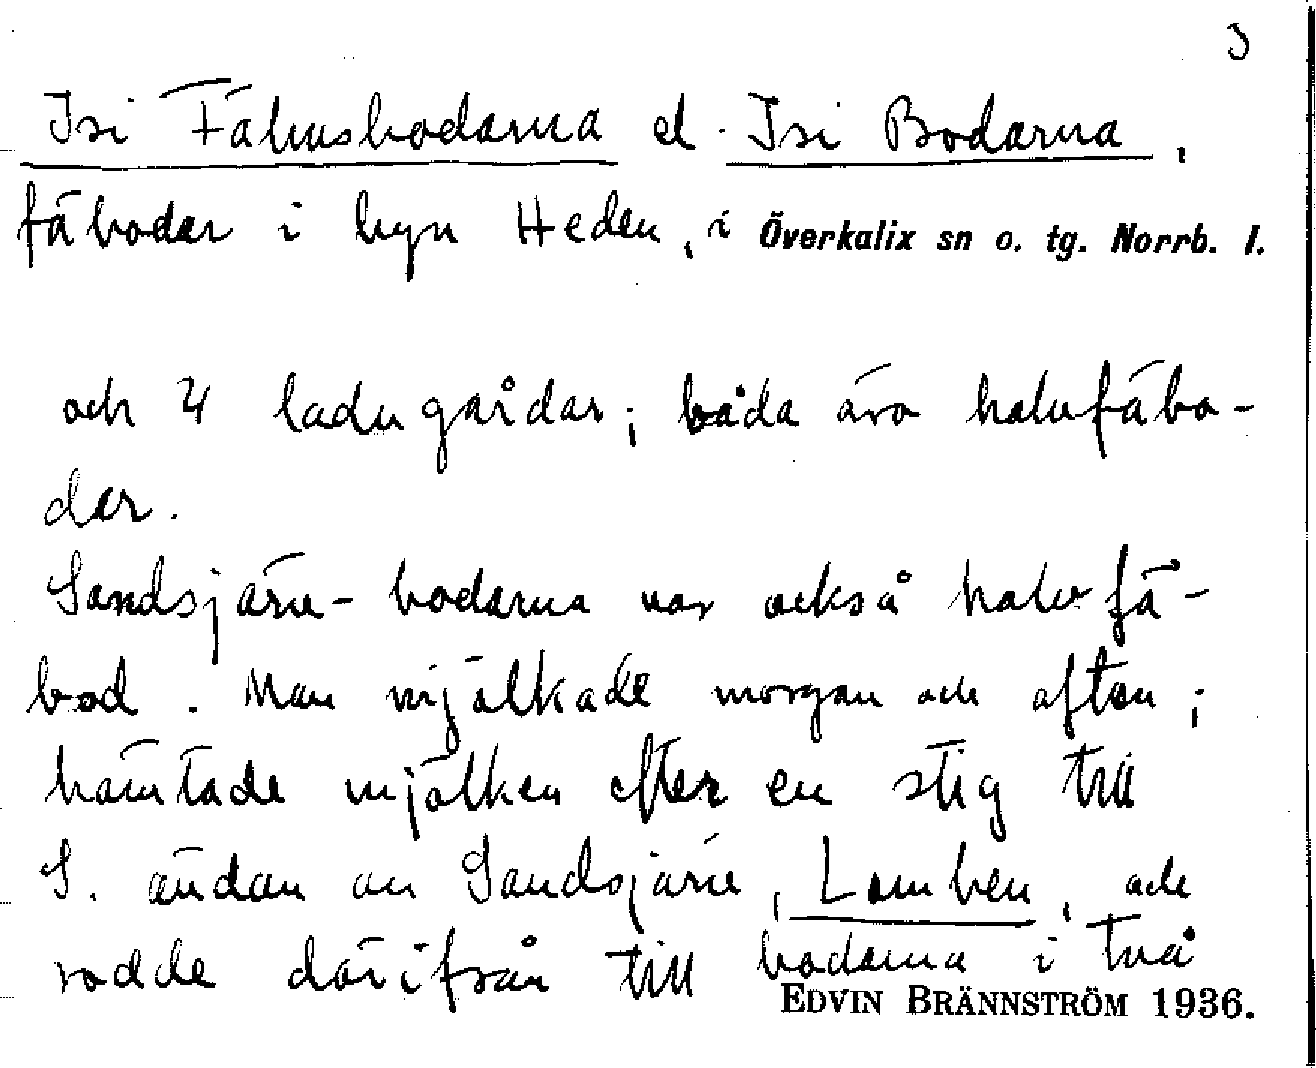 3
Isi Fähusbodarna el. Isi Bodarna,
fäbodar i byn Heden, i Överkalix sn o. tg. Norrb. l.
och 4 ladugårdar; båda äro halvfäbo-
dar.
Sandsjärv-bodarna var också halvfä-
bod. Man mjölkade morgon och afton;
hämtade mjölken efter en stig till
S. ändan av Sandsjärv, Lomben, och
rodde därifrån till bodarna i två
EDVIN BRÄNNSTRÖM 1936.